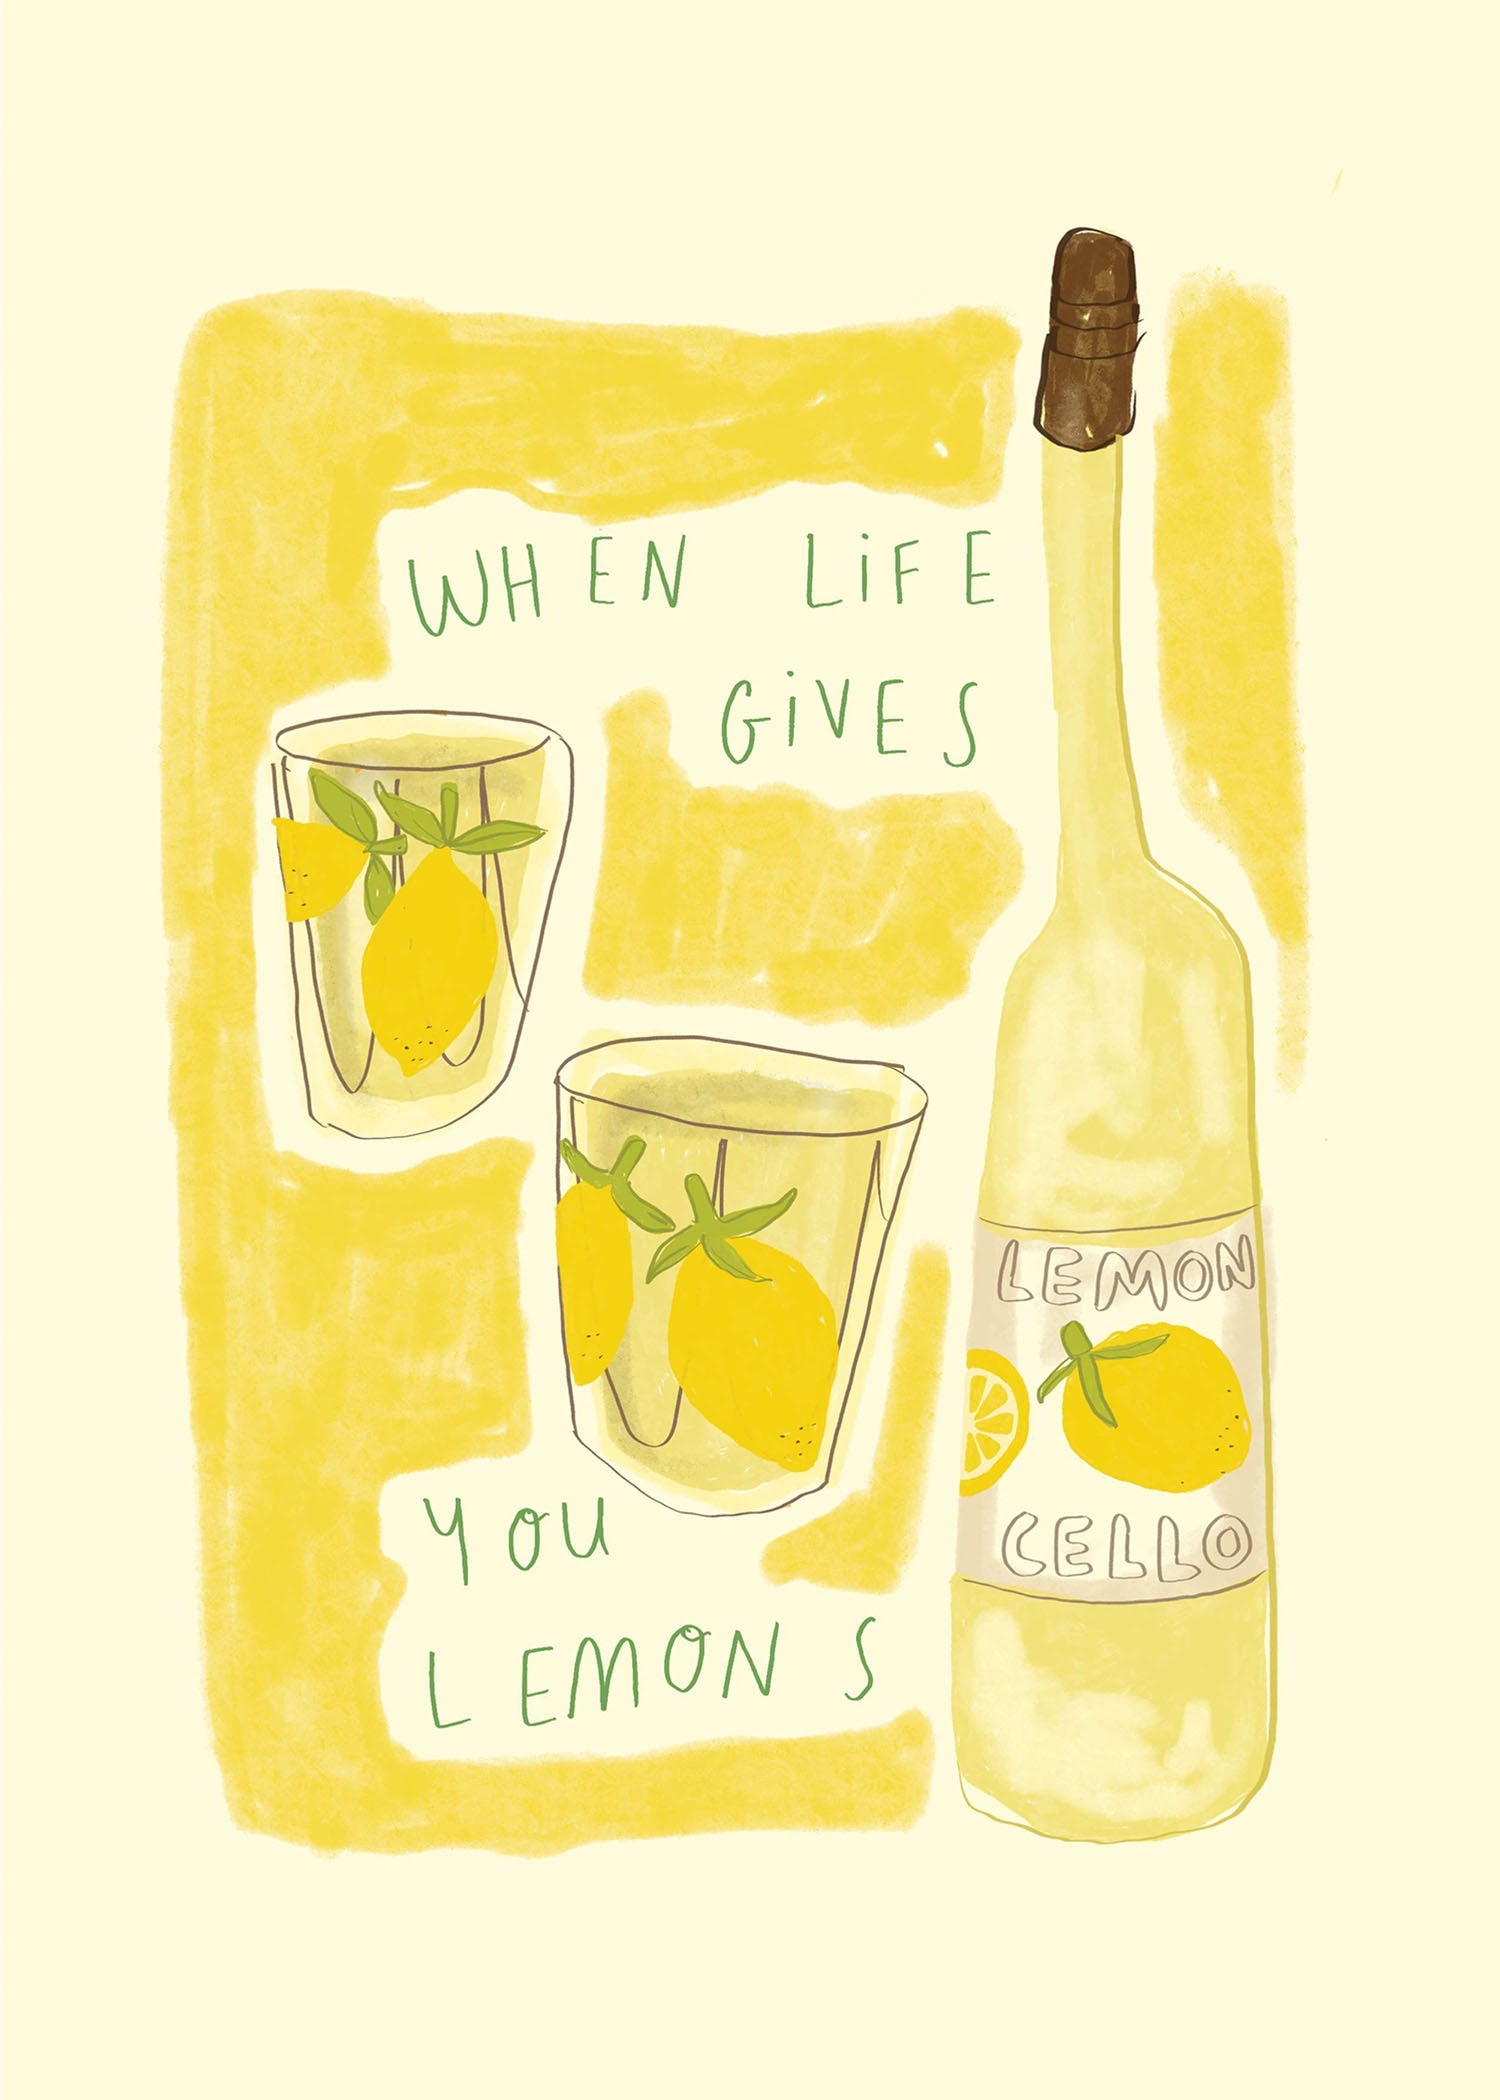 WHEN LiFE
GiVES
YOU
LEMONS
LEMON
CELLO